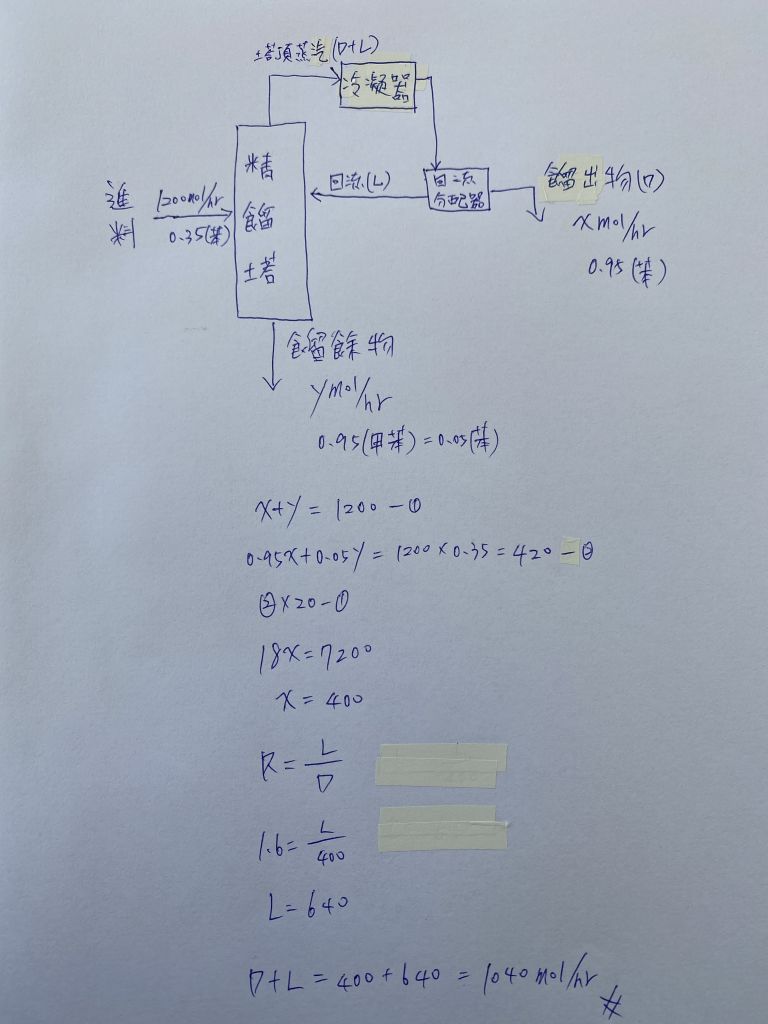 塔頂蒸汽(D+L)
冷凝器
精
餾
塔
進
料
1200mol/hr
0.35(苯)
回流(L)
回流
分配器
餾出物(D)
x mol/hr
0.95(苯)
餾餘物
y mol/hr
0.95(甲苯)=0.05(苯)
x+y=1200-①
0.95x+0.05y=1200×0.35=420-②
②×20-①
18x=7200
x=400
R=L/D
1.6=L/400
L=640
D+L=400+640=1040mol/hr #